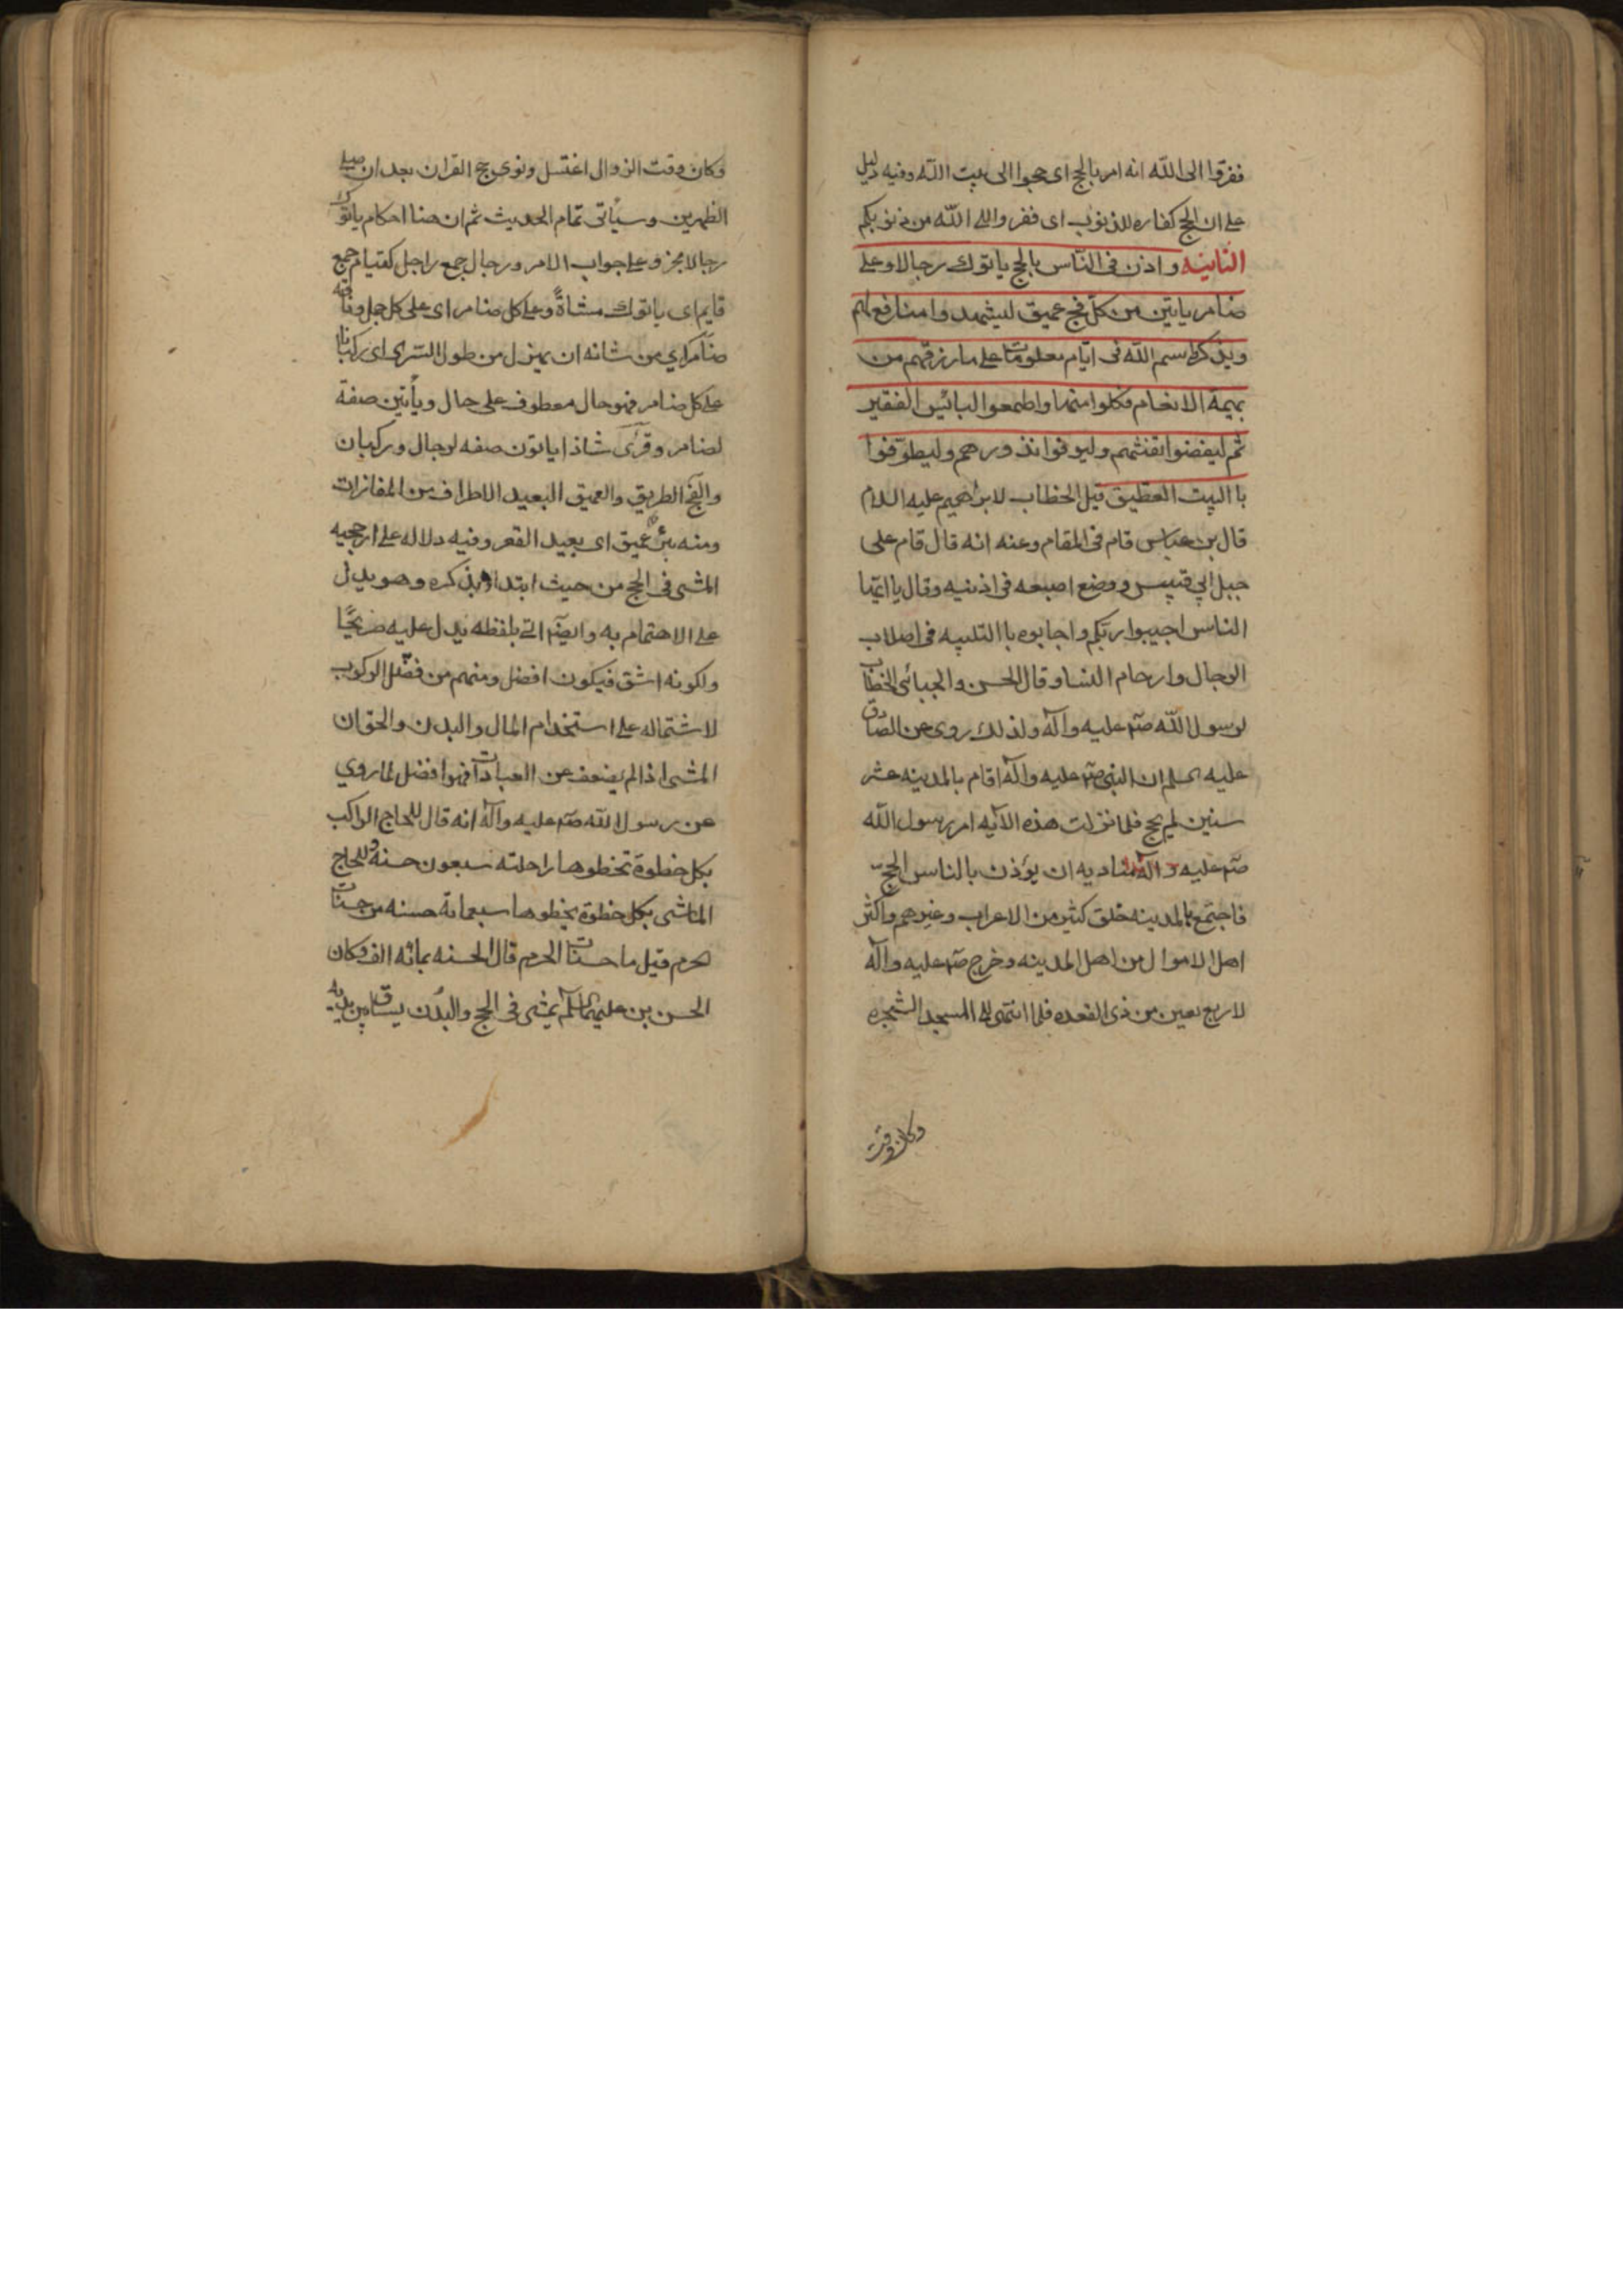 ففروا الى الله انه امر بالحج اى حجوا الى بيت الله وفيه دليل
على ان الحج كفاره للذنوب اى ففروا الى الله من ذنوبكم
الثانيه واذن فى الناس بالحج ياتوك رجالا وعلى
ضامر ياتين من كل فج عميق ليشهدوا منافع لهم
ويذكروا سم الله فى ايام معلومات على ما رزقهم من
بهيمة الانعام فكلوا منها واطمعوا البائس الفقير
ثم ليقضوا تفثهم وليوفوا نذورهم وليطوفوا
باالبيت العتيق قيل الخطاب لابراهيم عليه السلام
قال بن عباس قام فى المقام وعنه انه قال قام على
جبل ابي قبيس ووضع اصبعه فى اذنيه وقال يا ايها
الناس اجيبوا ربكم واجابوه باالتلبيه فى اصلاب
الرجال وارحام النسا وقال الحسن والجبائى الخطاب
لرسول الله صلم عليه وآله ولذلك روى عن الصادق
عليه السلم ان النبى صلم عليه وآله اقام بالمدينه عشر
سنين لم يحج فلما نزلت هذه الآيه امر رسول الله
صلم عليه وآله مناديه ان يؤذن بالناس الحج
فاجتمع بالمدينه خلق كثير من الاعراب وغيرهم واكثر
اهل الاموال من اهل المدينه وخرج صلم عليه وآله
لاربع بقين من ذى القعده فلما انتهى الى المسجد الشجره
وكان وقت
وكان وقت الزوال اغتسل ونوى حج القران بعد ان صلى
الظهرين وسيأتى تمام الحديث ثم ان هنا احكام ياتوك
رجالا مجزوم على جواب الامر ورجال جمع راجل كقيام جمع
قايم اى ياتوك مشاةً وعلى كل ضامر اى على كل جمل وناقه
ضامر اي من شانه ان يهزل من طول السرى اى ركبانا
على كل ضامر فهو حال معطوف على حال ويأتين صفة
لضامر وقرئ شاذا ياتون صفه لرجال وركبان
والفج الطريق والعميق البعيد الاطراف من المفازات
ومنه بئر عميق اى بعيد القعر وفيه دلاله على ارجحيه
المشى فى الحج من حيث ابتداء بذكره وهو يدل
على الاهتمام به وايضا التى بلفظه يدل عليه صريحًا
ولكونه اشق فيكون افضل ومنهم من فضّل الركوب
لاشتماله على استخدام المال والبدن والحق ان
المشى اذا لم يضعف عن العبادات فهوا فضل لما روي
عن رسول الله صلم عليه وآله انه قال للحاج الراكب
بكل خطوة تخطوها راحلته سبعون حسنة وللحاج
الماشى بكل خطوة يخطوها سبعماية حسنه من حسنات
الحرم قيل ما حسنات الحرم قال الحسنه بمائه الف وكان
الحسن بن على عليهما السلم يمشى فى الحج والبُدْن يساق بين يديه